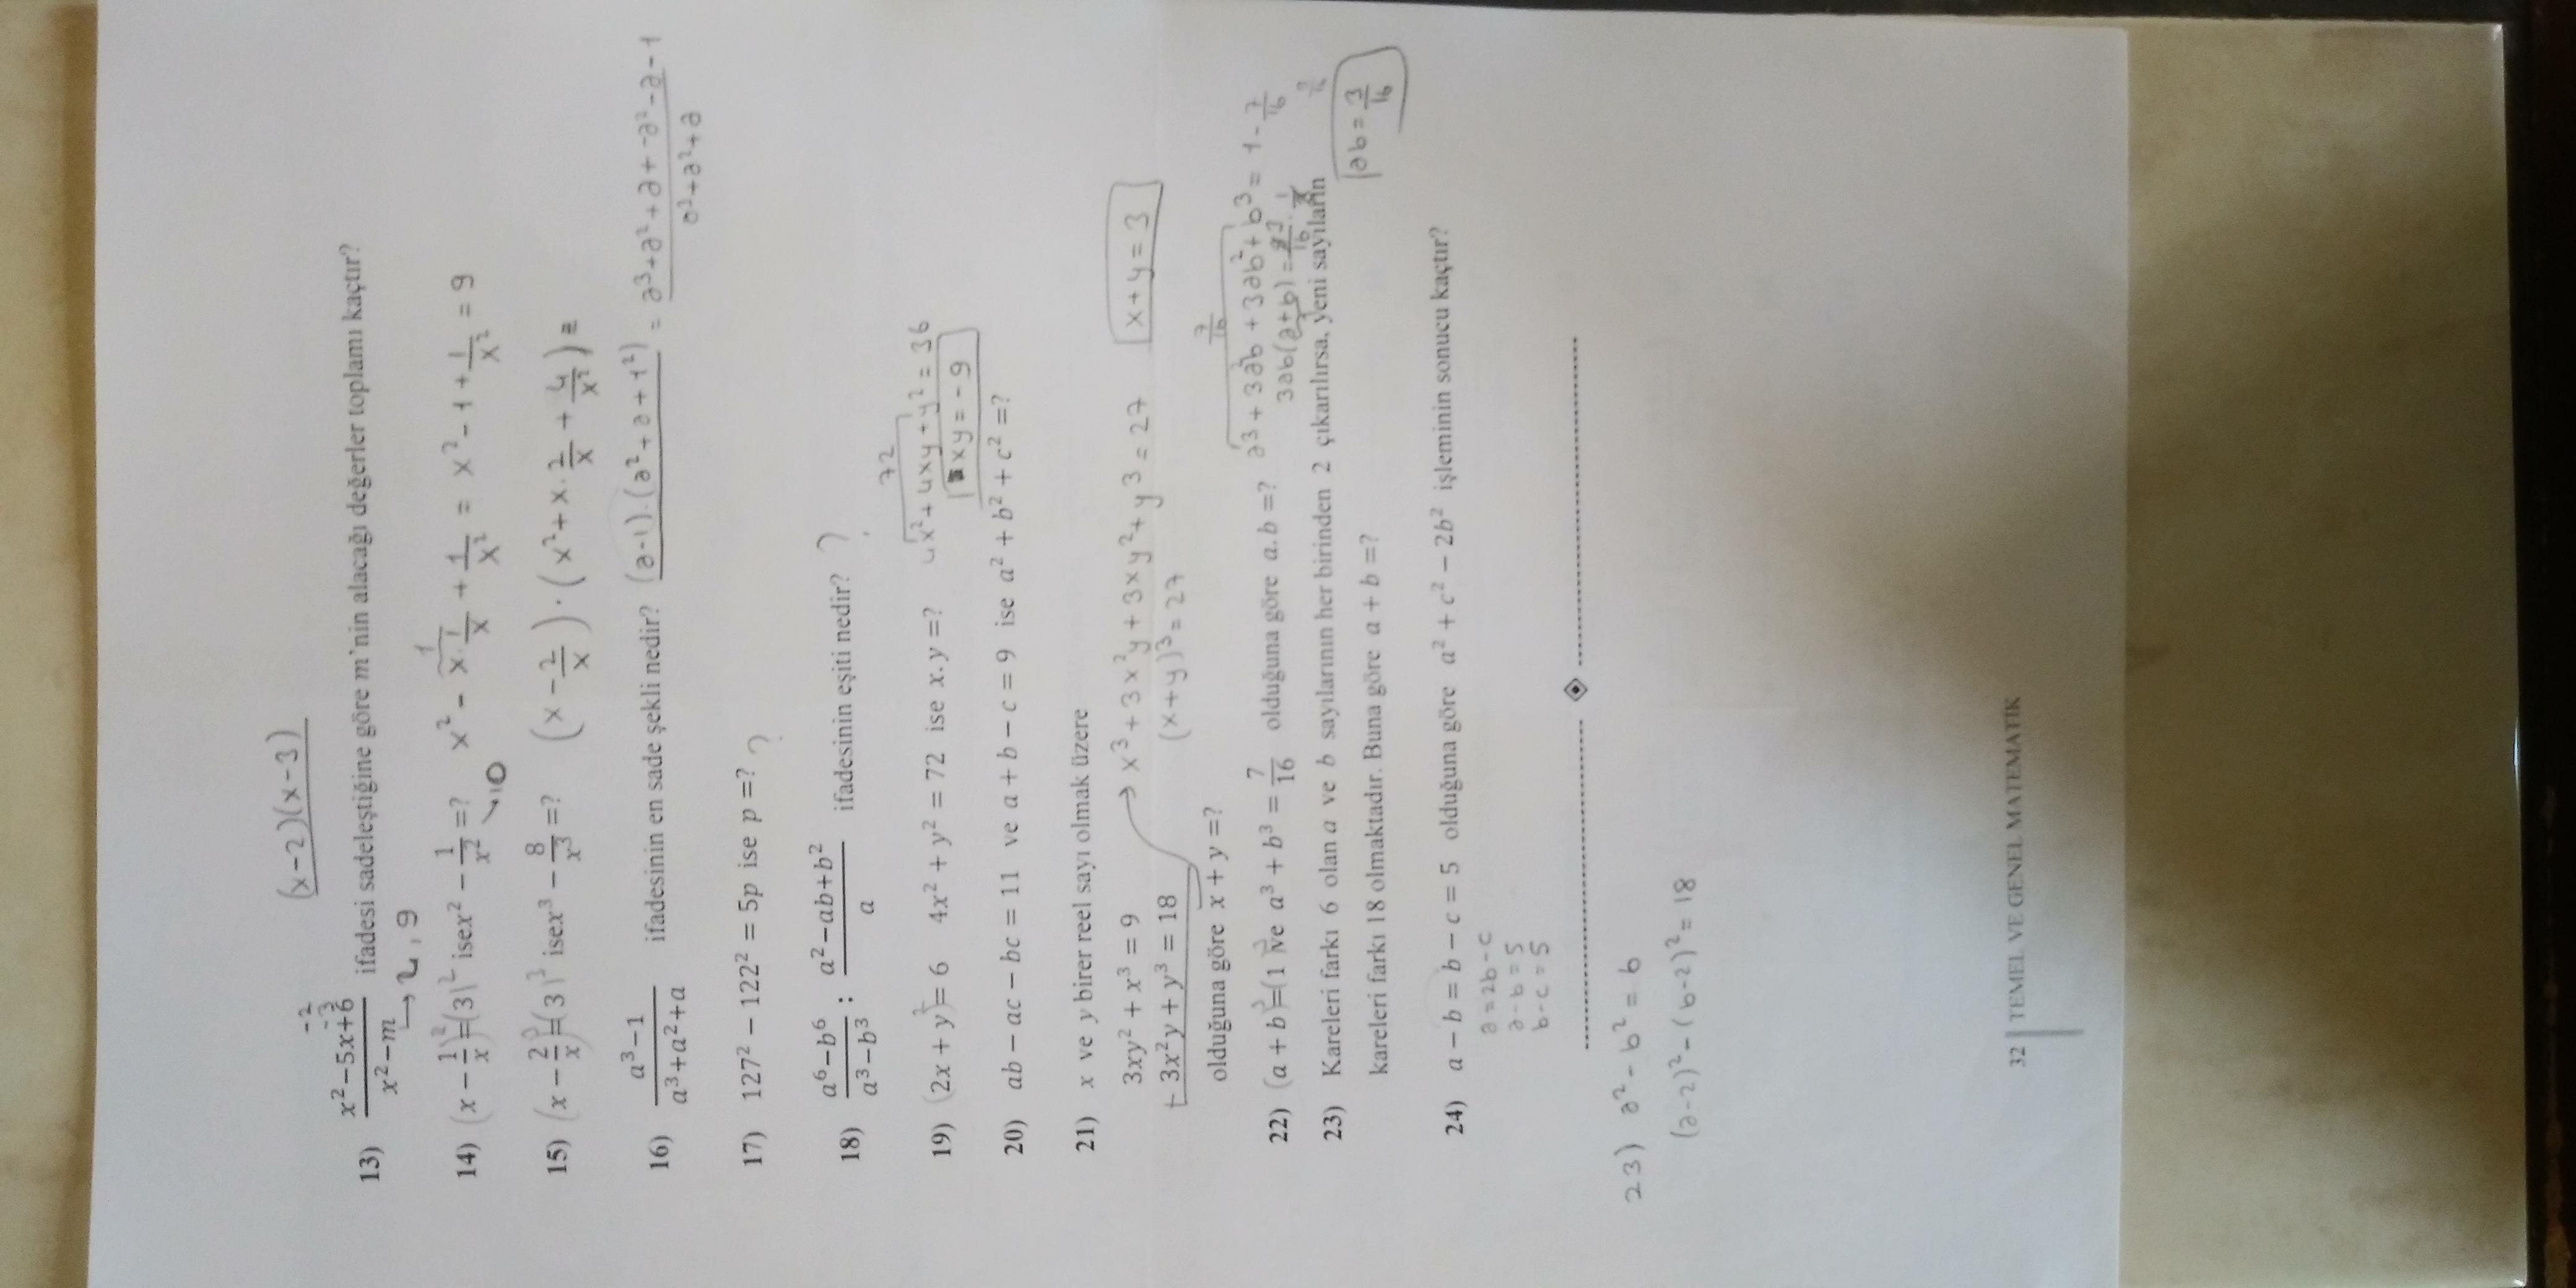 (x-2)(x-3)
-2
-3
13) x²-5x+6 / x²-m ifadesi sadeleştiğine göre m'nin alacağı değerler toplamı kaçtır?
→ 4, 9
14) (x - 1/x)² = (3)² ise x² - 1/x² =? x² - x·1/x + 1/x² = x² - 1 + 1/x² = 9
1
↘10
15) (x - 2/x)³ = (3)³ ise x³ - 8/x³ =? (x - 2/x)·(x² + x·2/x + 4/x²) =
16) a³-1 / a³+a²+a ifadesinin en sade şekli nedir? (a-1).(a²+a+1²) = a³+a²+a+-a²-a-1 / a³+a²+a
17) 127² - 122² = 5p ise p =? ?
18) a⁶-b⁶ / a³-b³ : a²-ab+b² / a ifadesinin eşiti nedir? ?
72
19) (2x + y)² = 6 4x² + y² = 72 ise x.y =? 4x² + 4xy + y² = 36
xy = -9
20) ab - ac - bc = 11 ve a + b - c = 9 ise a² + b² + c² =?
21) x ve y birer reel sayı olmak üzere
3xy² + x³ = 9 → x³ + 3x²y + 3xy² + y³ = 27 x + y = 3
+ 3x²y + y³ = 18 (x+y)³ = 27
olduğuna göre x + y =?
7/16
22) (a + b)³ = (1)³ ve a³ + b³ = 7/16 olduğuna göre a.b =? a³ + 3a²b + 3ab² + b³ = 1 - 7/16
3ab(a+b) =
23) Kareleri farkı 6 olan a ve b sayılarının her birinden 2 çıkarılırsa, yeni sayıların
ab = 3/16
kareleri farkı 18 olmaktadır. Buna göre a + b =?
24) a - b = b - c = 5 olduğuna göre a² + c² - 2b² işleminin sonucu kaçtır?
a = 2b - c
a - b = 5
b - c = 5
23) a² - b² = 6
(a-2)² - (b-2)² = 18
32 | TEMEL VE GENEL MATEMATİK